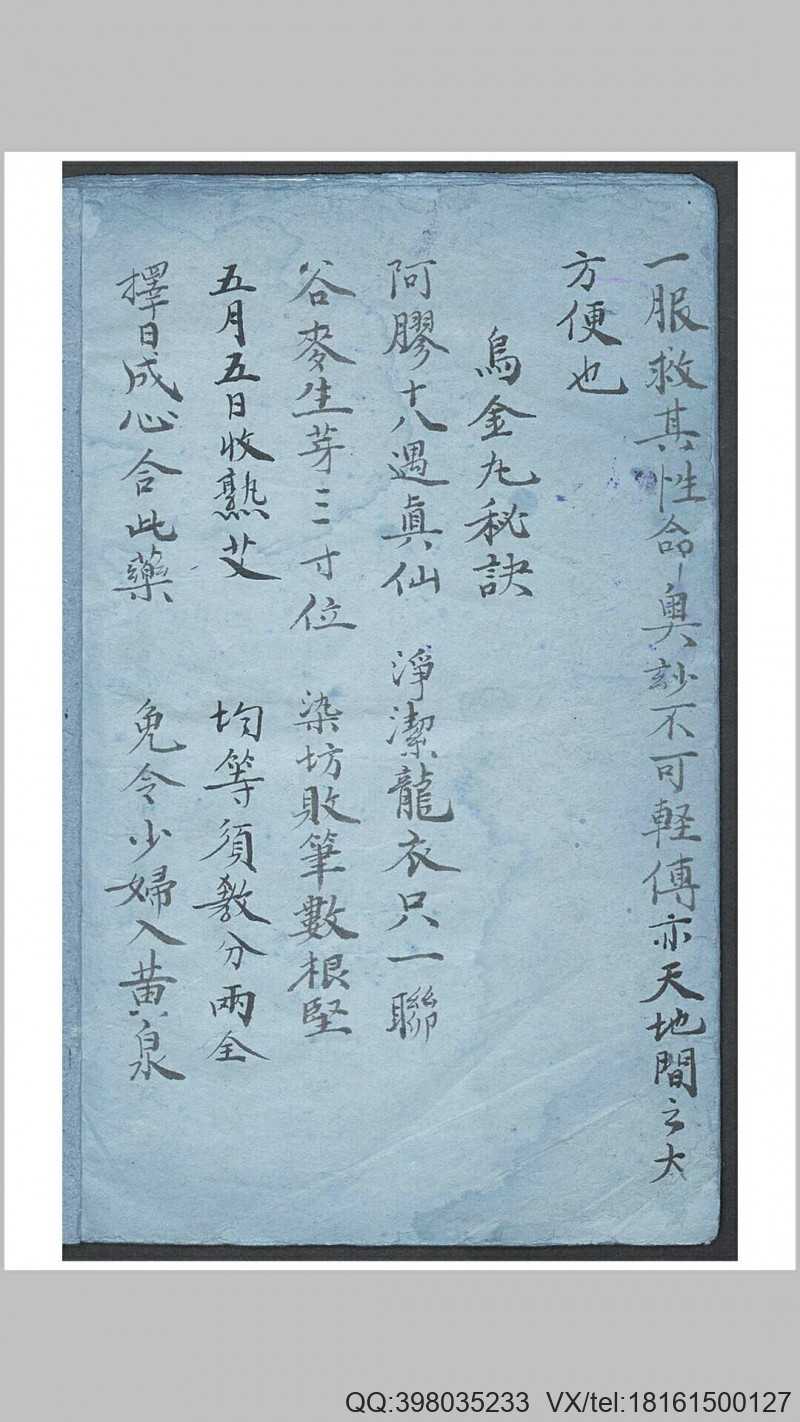 一服救其性命奥玅不可軽傳亦天地間之大
方便也
烏金丸秘訣
阿膠十八遇眞仙　淨潔龍衣只一聯
谷麥生芽三寸位　染坊敗筆數根堅
五月五日收熟艾　均等須教分兩全
擇日成心合此藥　免令少婦入黄泉
QQ:398035233 VX/tel:18161500127